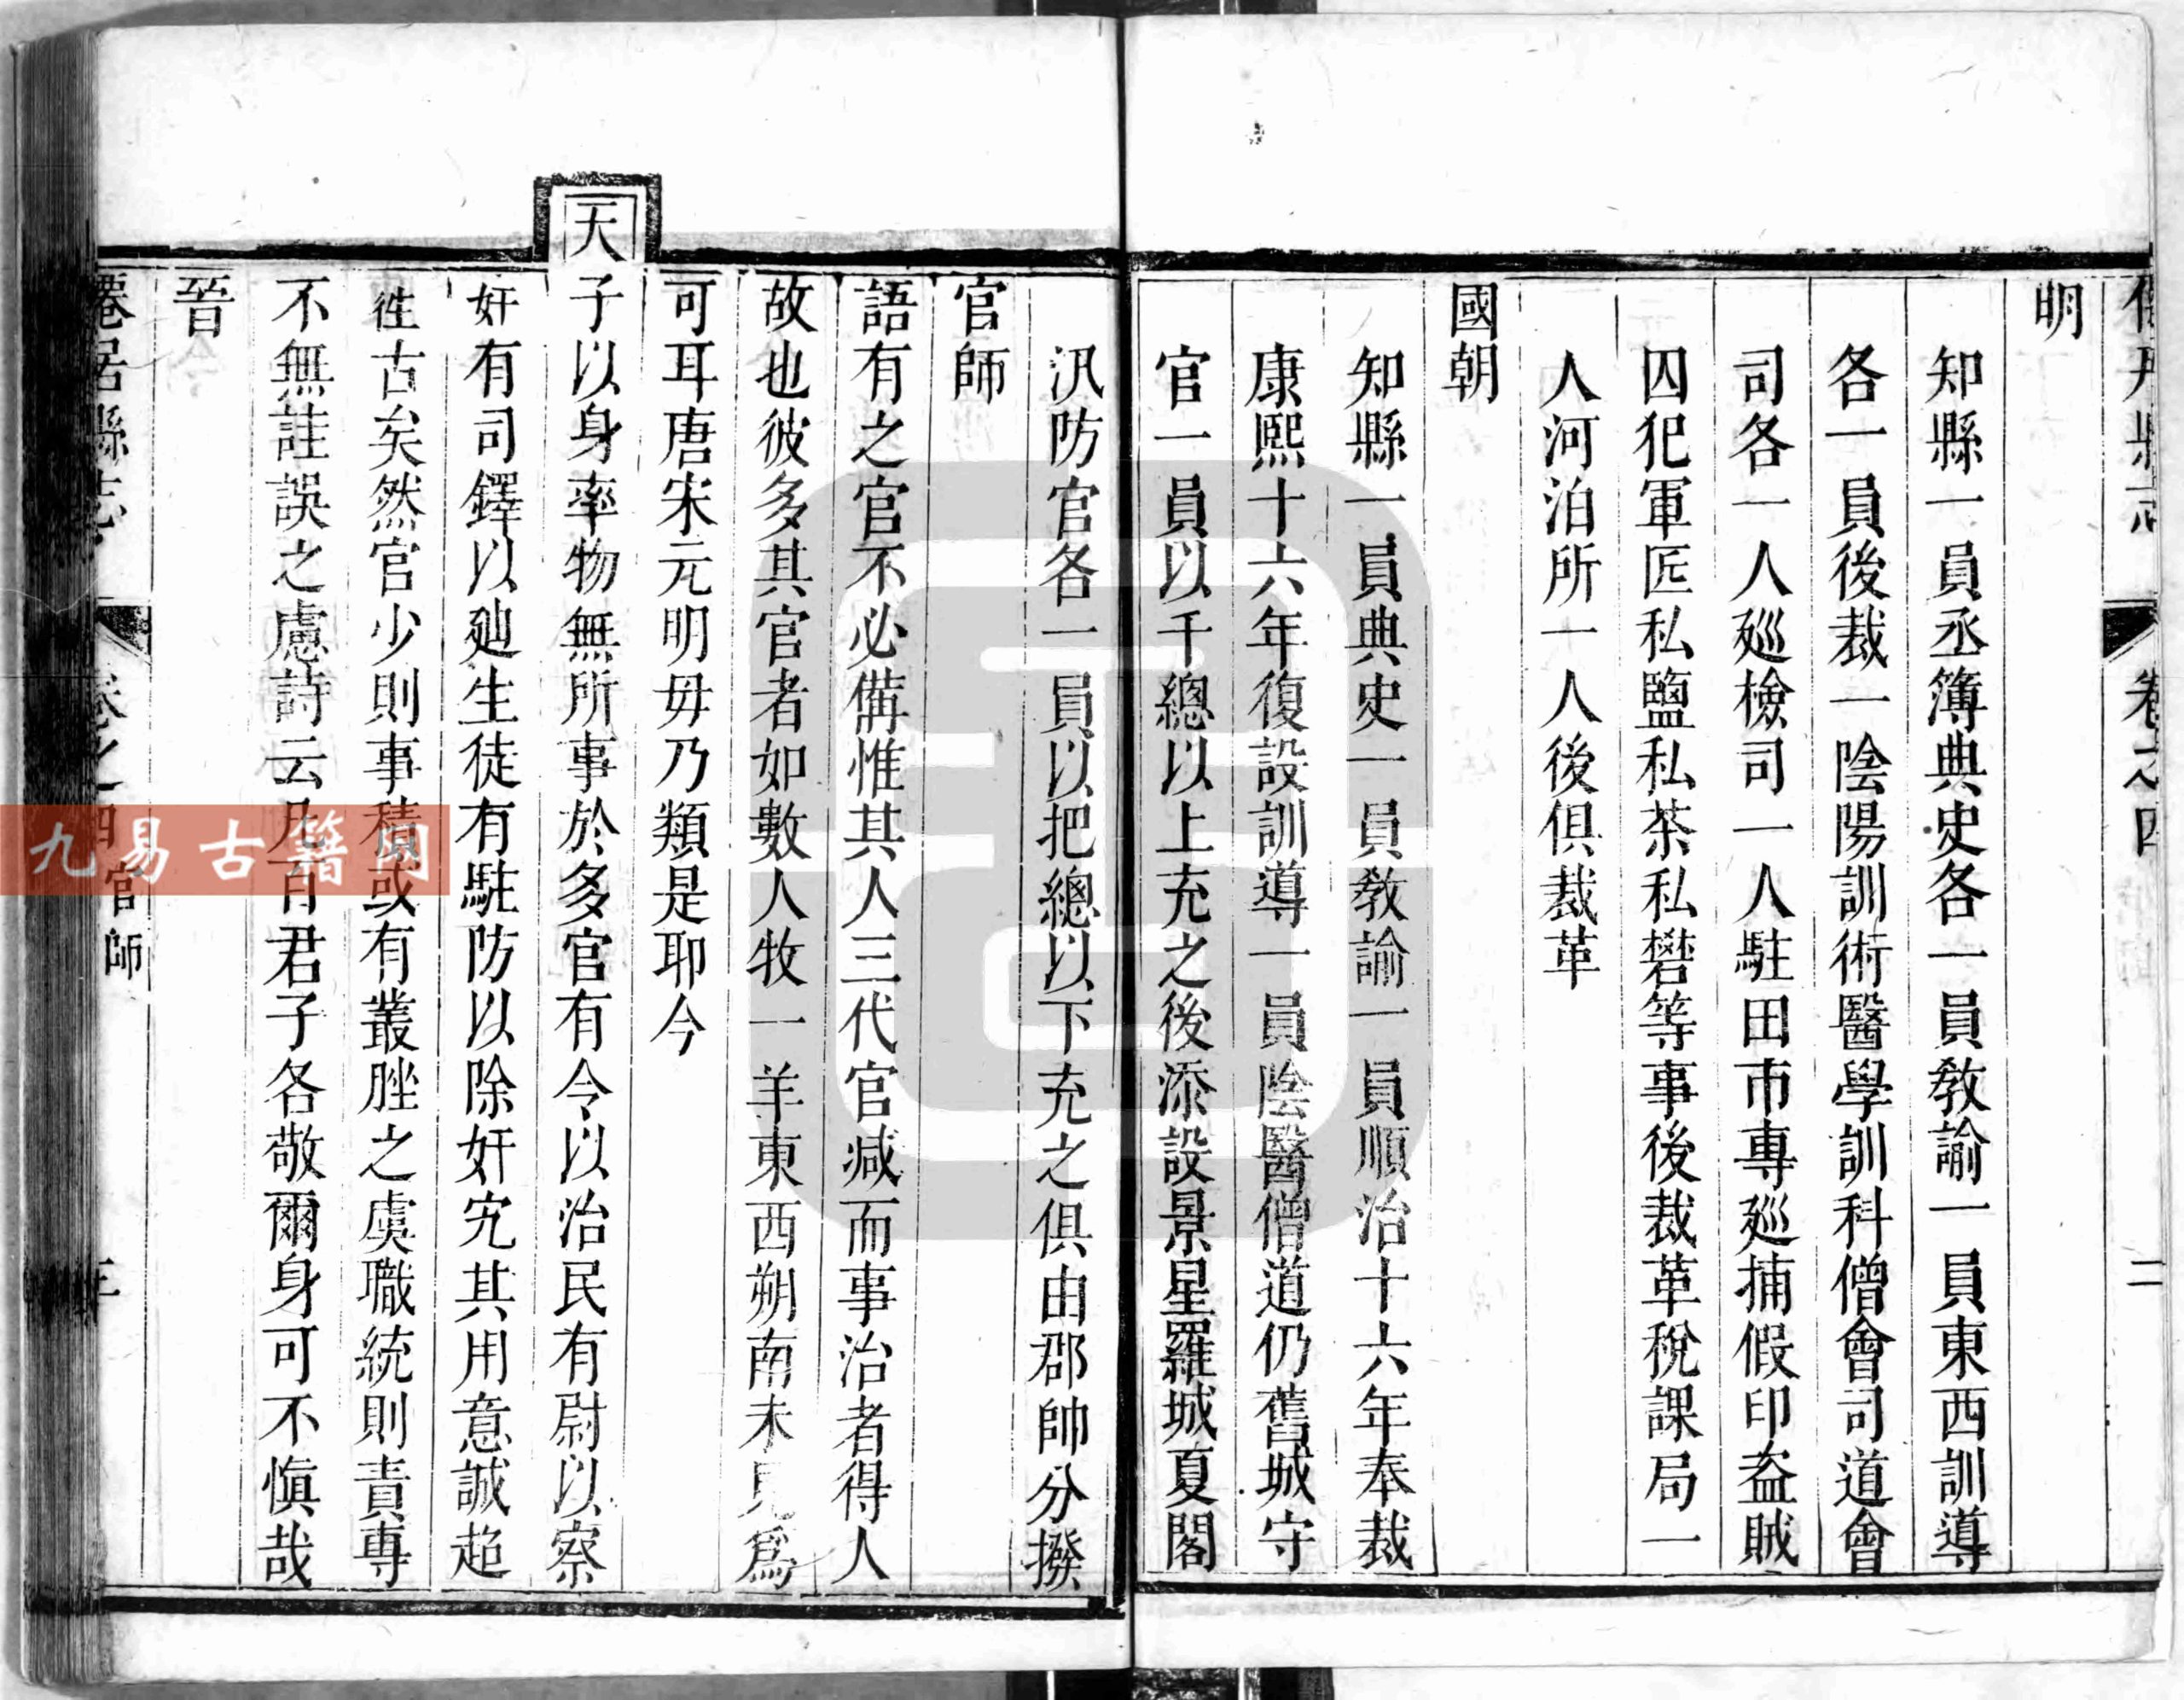 明
知縣一員丞簿典史各一員敎諭一員東西訓導
各一員後裁一陰陽訓術醫學訓科僧會司道會
司各一人廵檢司一人駐田市專廵捕假印盗賊
囚犯軍匠私鹽私茶私礬等事後裁革稅課局一
人河泊所一人後俱裁革
國朝
知縣一員典史一員敎諭一員順治十六年奉裁
康熙十六年復設訓導一員陰醫僧道仍舊城守
官一員以千總以上充之後添設景星羅城夏閣
汛防官各一員以把總以下充之俱由郡帥分撥
官師
語有之官不必備惟其人三代官减而事治者得人
故也彼多其官者如數人牧一羊東西朔南未見爲
可耳唐宋元明毋乃類是耶今
天子以身率物無所事於多官有令以治民有尉以察
奸有司鐸以廸生徒有駐防以除奸宄其用意誠超
徃古矣然官少則事積或有叢脞之虞職統則責專
不無註誤之慮詩云凡百君子各敬爾身可不愼哉
晉
僊居縣志
卷之四
官師
三
縣志
卷之四
二
九易古籍网